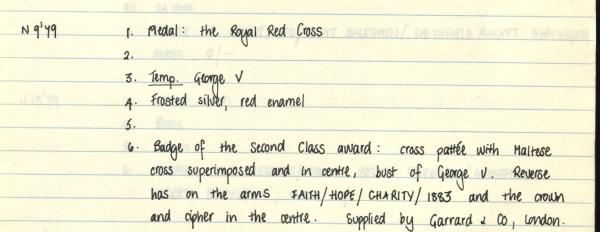 N 9'49 1. Medal: the Royal Red Cross
2.
3. Temp. George V
4. Frosted silver, red enamel
5.
6. Badge of the Second Class award: cross pattée with Maltese
cross superimposed and in centre, bust of George V. Reverse
has on the arms FAITH/HOPE/CHARITY/1883 and the crown
and cipher in the centre. Supplied by Garrard & Co, London.